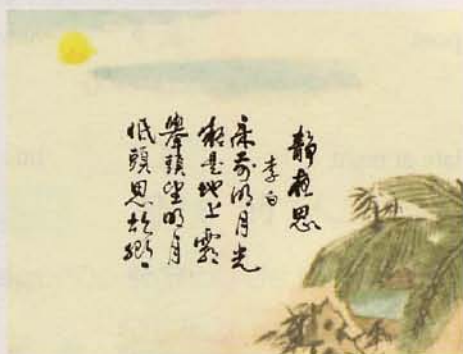 靜夜思
李白
床前明月光
疑是地上霜
舉頭望明月
低頭思故鄉